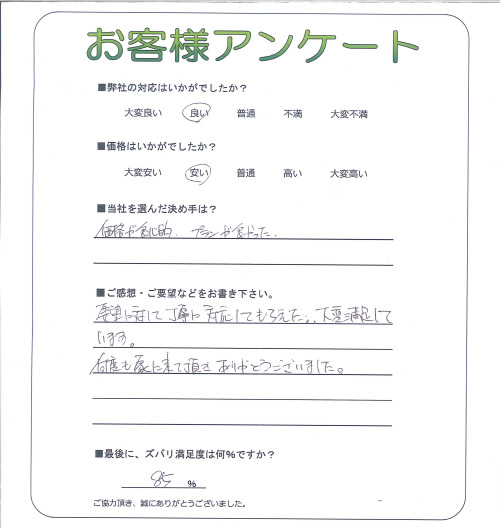 お客様アンケート
■弊社の対応はいかがでしたか？
大変良い 良い 普通 不満 大変不満
■価格はいかがでしたか？
大変安い 安い 普通 高い 大変高い
■当社を選んだ決め手は？
価格が 的、プランが良かった、
■ご感想・ご要望などをお書き下さい。
要望に対して丁寧に対応してもらえた。大変満足して
います。
何度も家に来て頂きありがとうございました。
■最後に、ズバリ満足度は何％ですか？
85 ％
ご協力頂き、誠にありがとうございました。